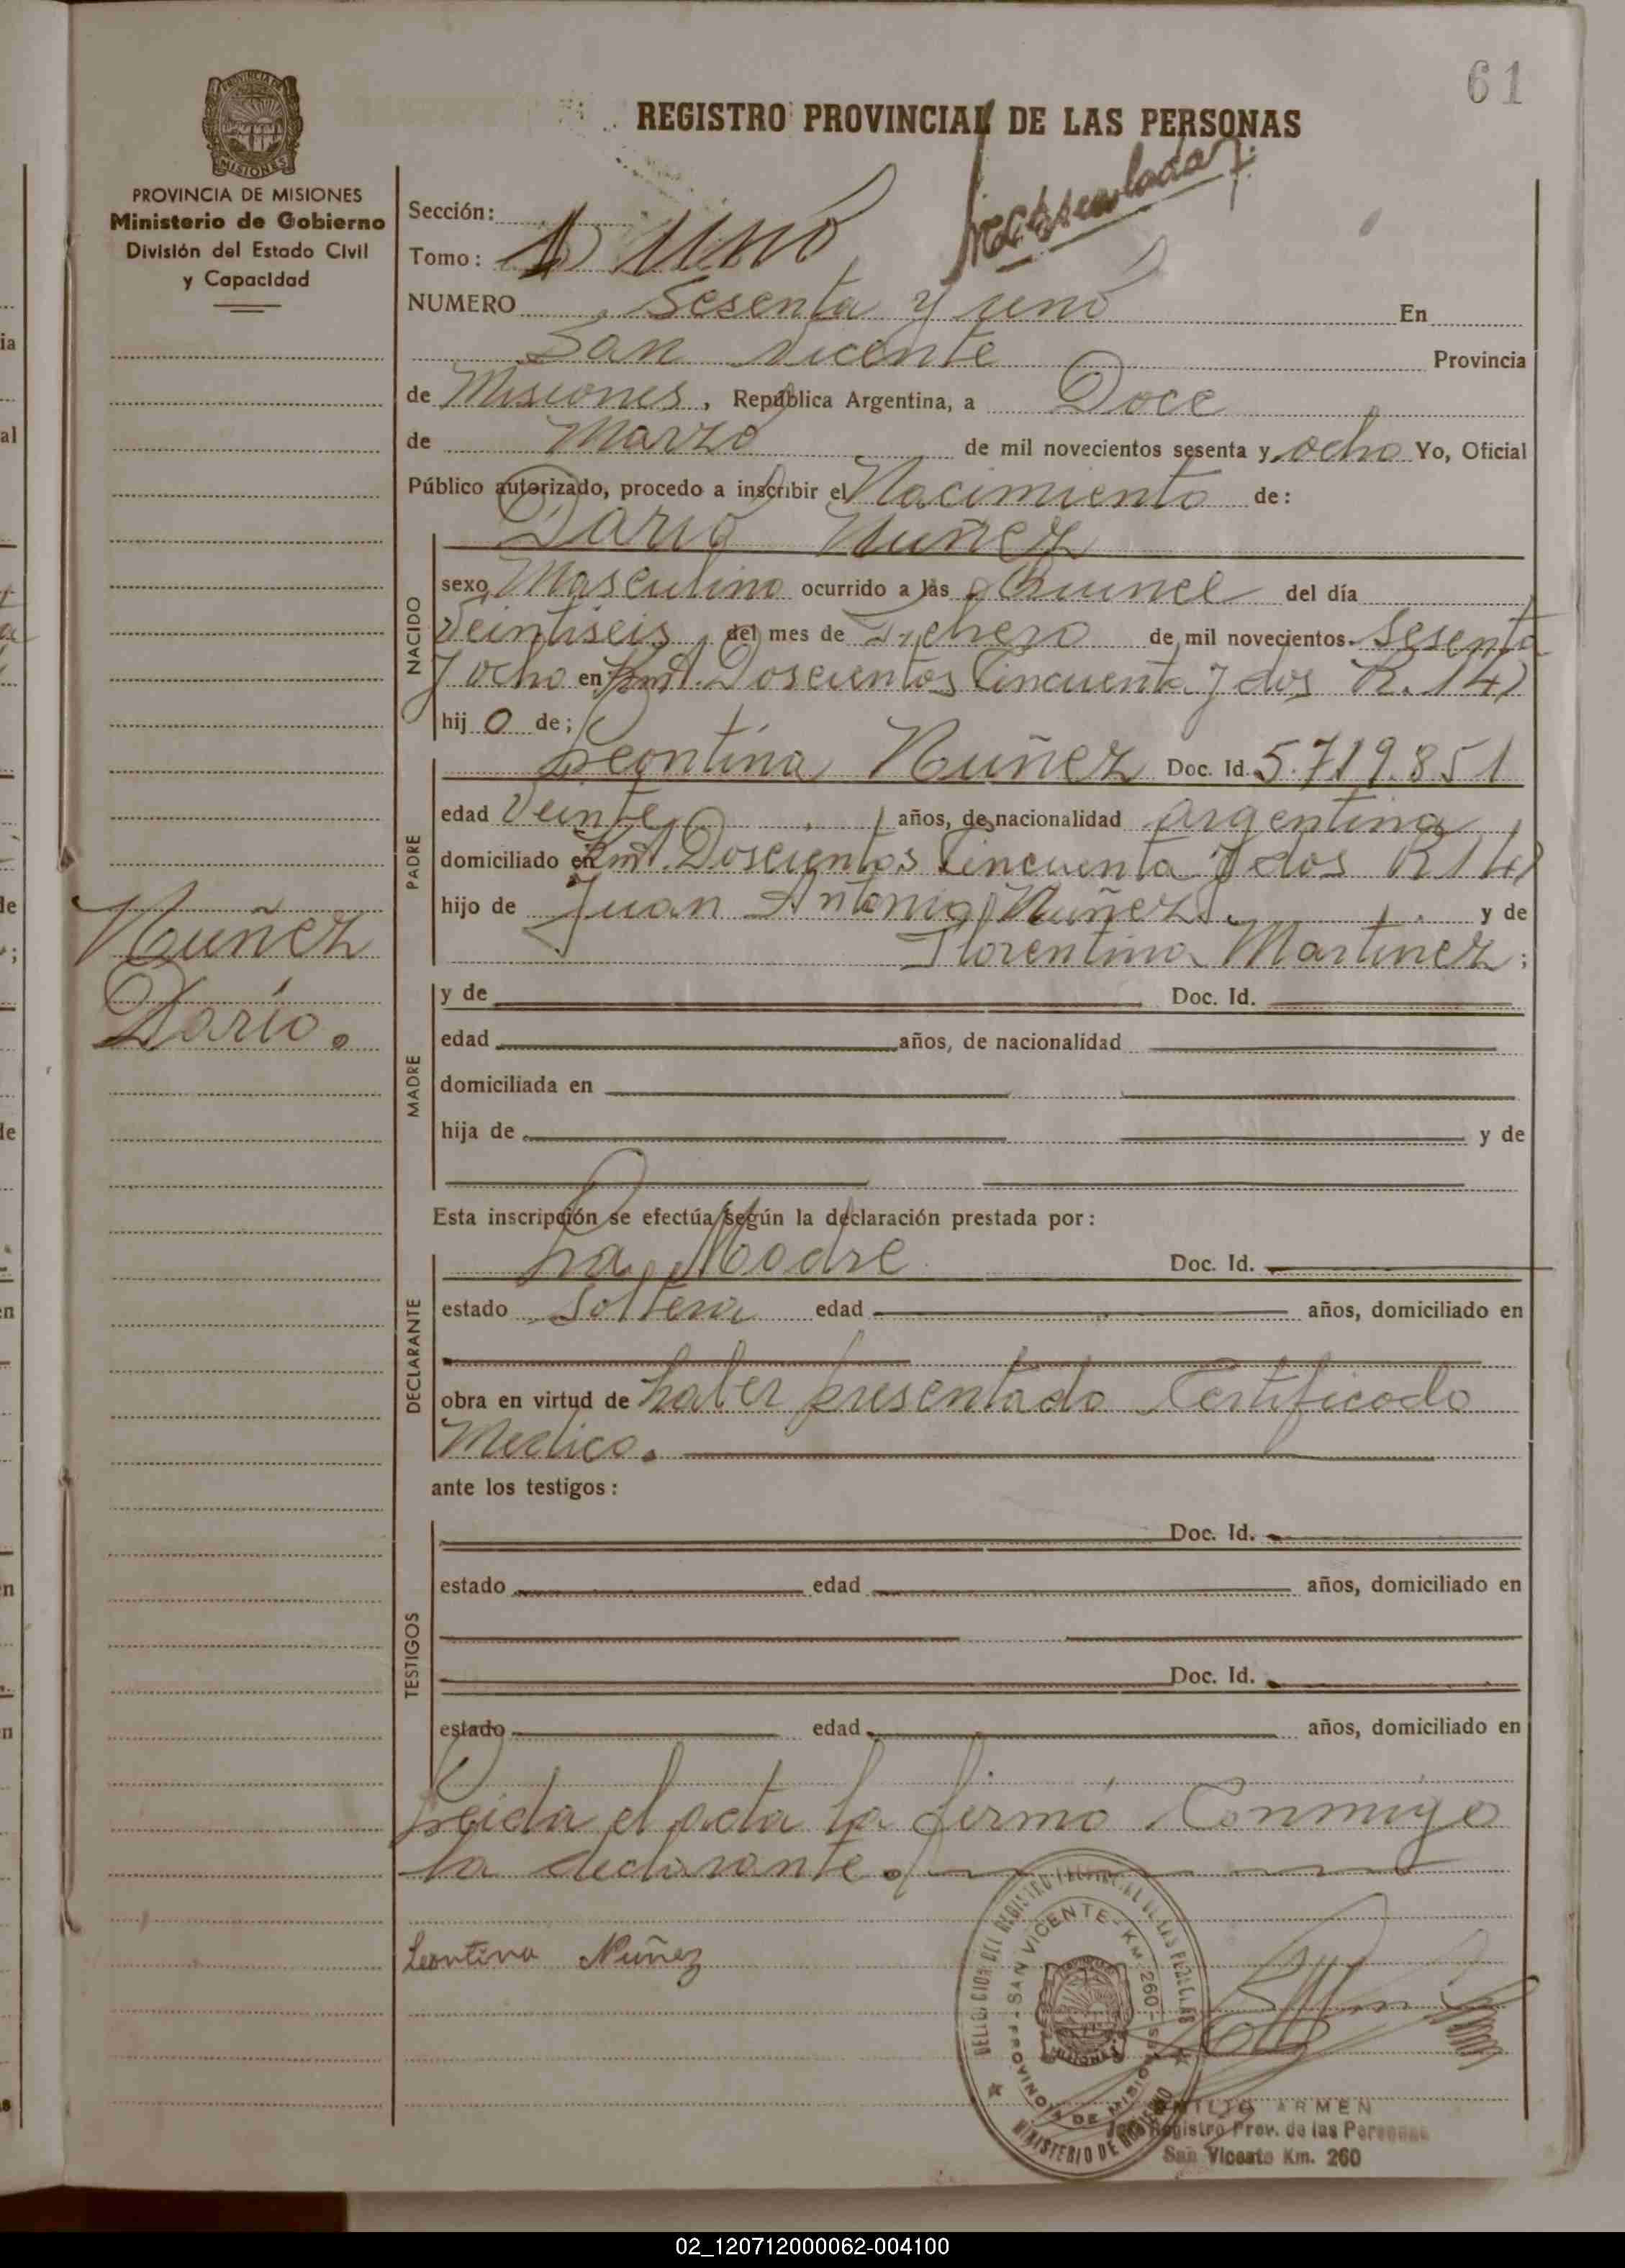 61
REGISTRO PROVINCIAL DE LAS PERSONAS
PROVINCIA DE MISIONES
Ministerio de Gobierno
División del Estado Civil
y Capacidad
Sección:
Tomo: 1) Uno
NUMERO Sesenta y uno En
San Vicente Provincia
de Misiones, República Argentina, a Doce
de Marzo de mil novecientos sesenta y ocho Yo, Oficial
Público autorizado, procedo a inscribir el Nacimiento de:
Dario Nuñez
NACIDO
sexo Masculino ocurrido a las Quince del día
Veintiseis del mes de Febrero de mil novecientos Sesenta
y ocho en Km. Doscientos Cincuenta y dos R. 14)
hij o de;
PADRE
Leontina Nuñez Doc. Id. 5.719.851
edad Veinte años, de nacionalidad argentina
domiciliado en Km. Doscientos Cincuenta y dos R 14)
hijo de Juan Antonio Nuñez y de
Florentina Martinez;
Nuñez
Darío.
MADRE
y de Doc. Id.
edad años, de nacionalidad
domiciliada en
hija de y de
Esta inscripción se efectúa según la declaración prestada por:
DECLARANTE
La Madre Doc. Id.
estado Soltera edad años, domiciliado en
obra en virtud de haber presentado Certificado
Medico.
ante los testigos:
TESTIGOS
Doc. Id.
estado edad años, domiciliado en
Doc. Id.
estado edad años, domiciliado en
Leida el acta la firmó Conmigo
la declarante.
Leontina Nuñez
SAN VICENTE - KM. 260
MINISTERIO DE GOBIERNO
ARMEN
Registro Prov. de las Personas
San Vicente Km. 260
02_120712000062-004100